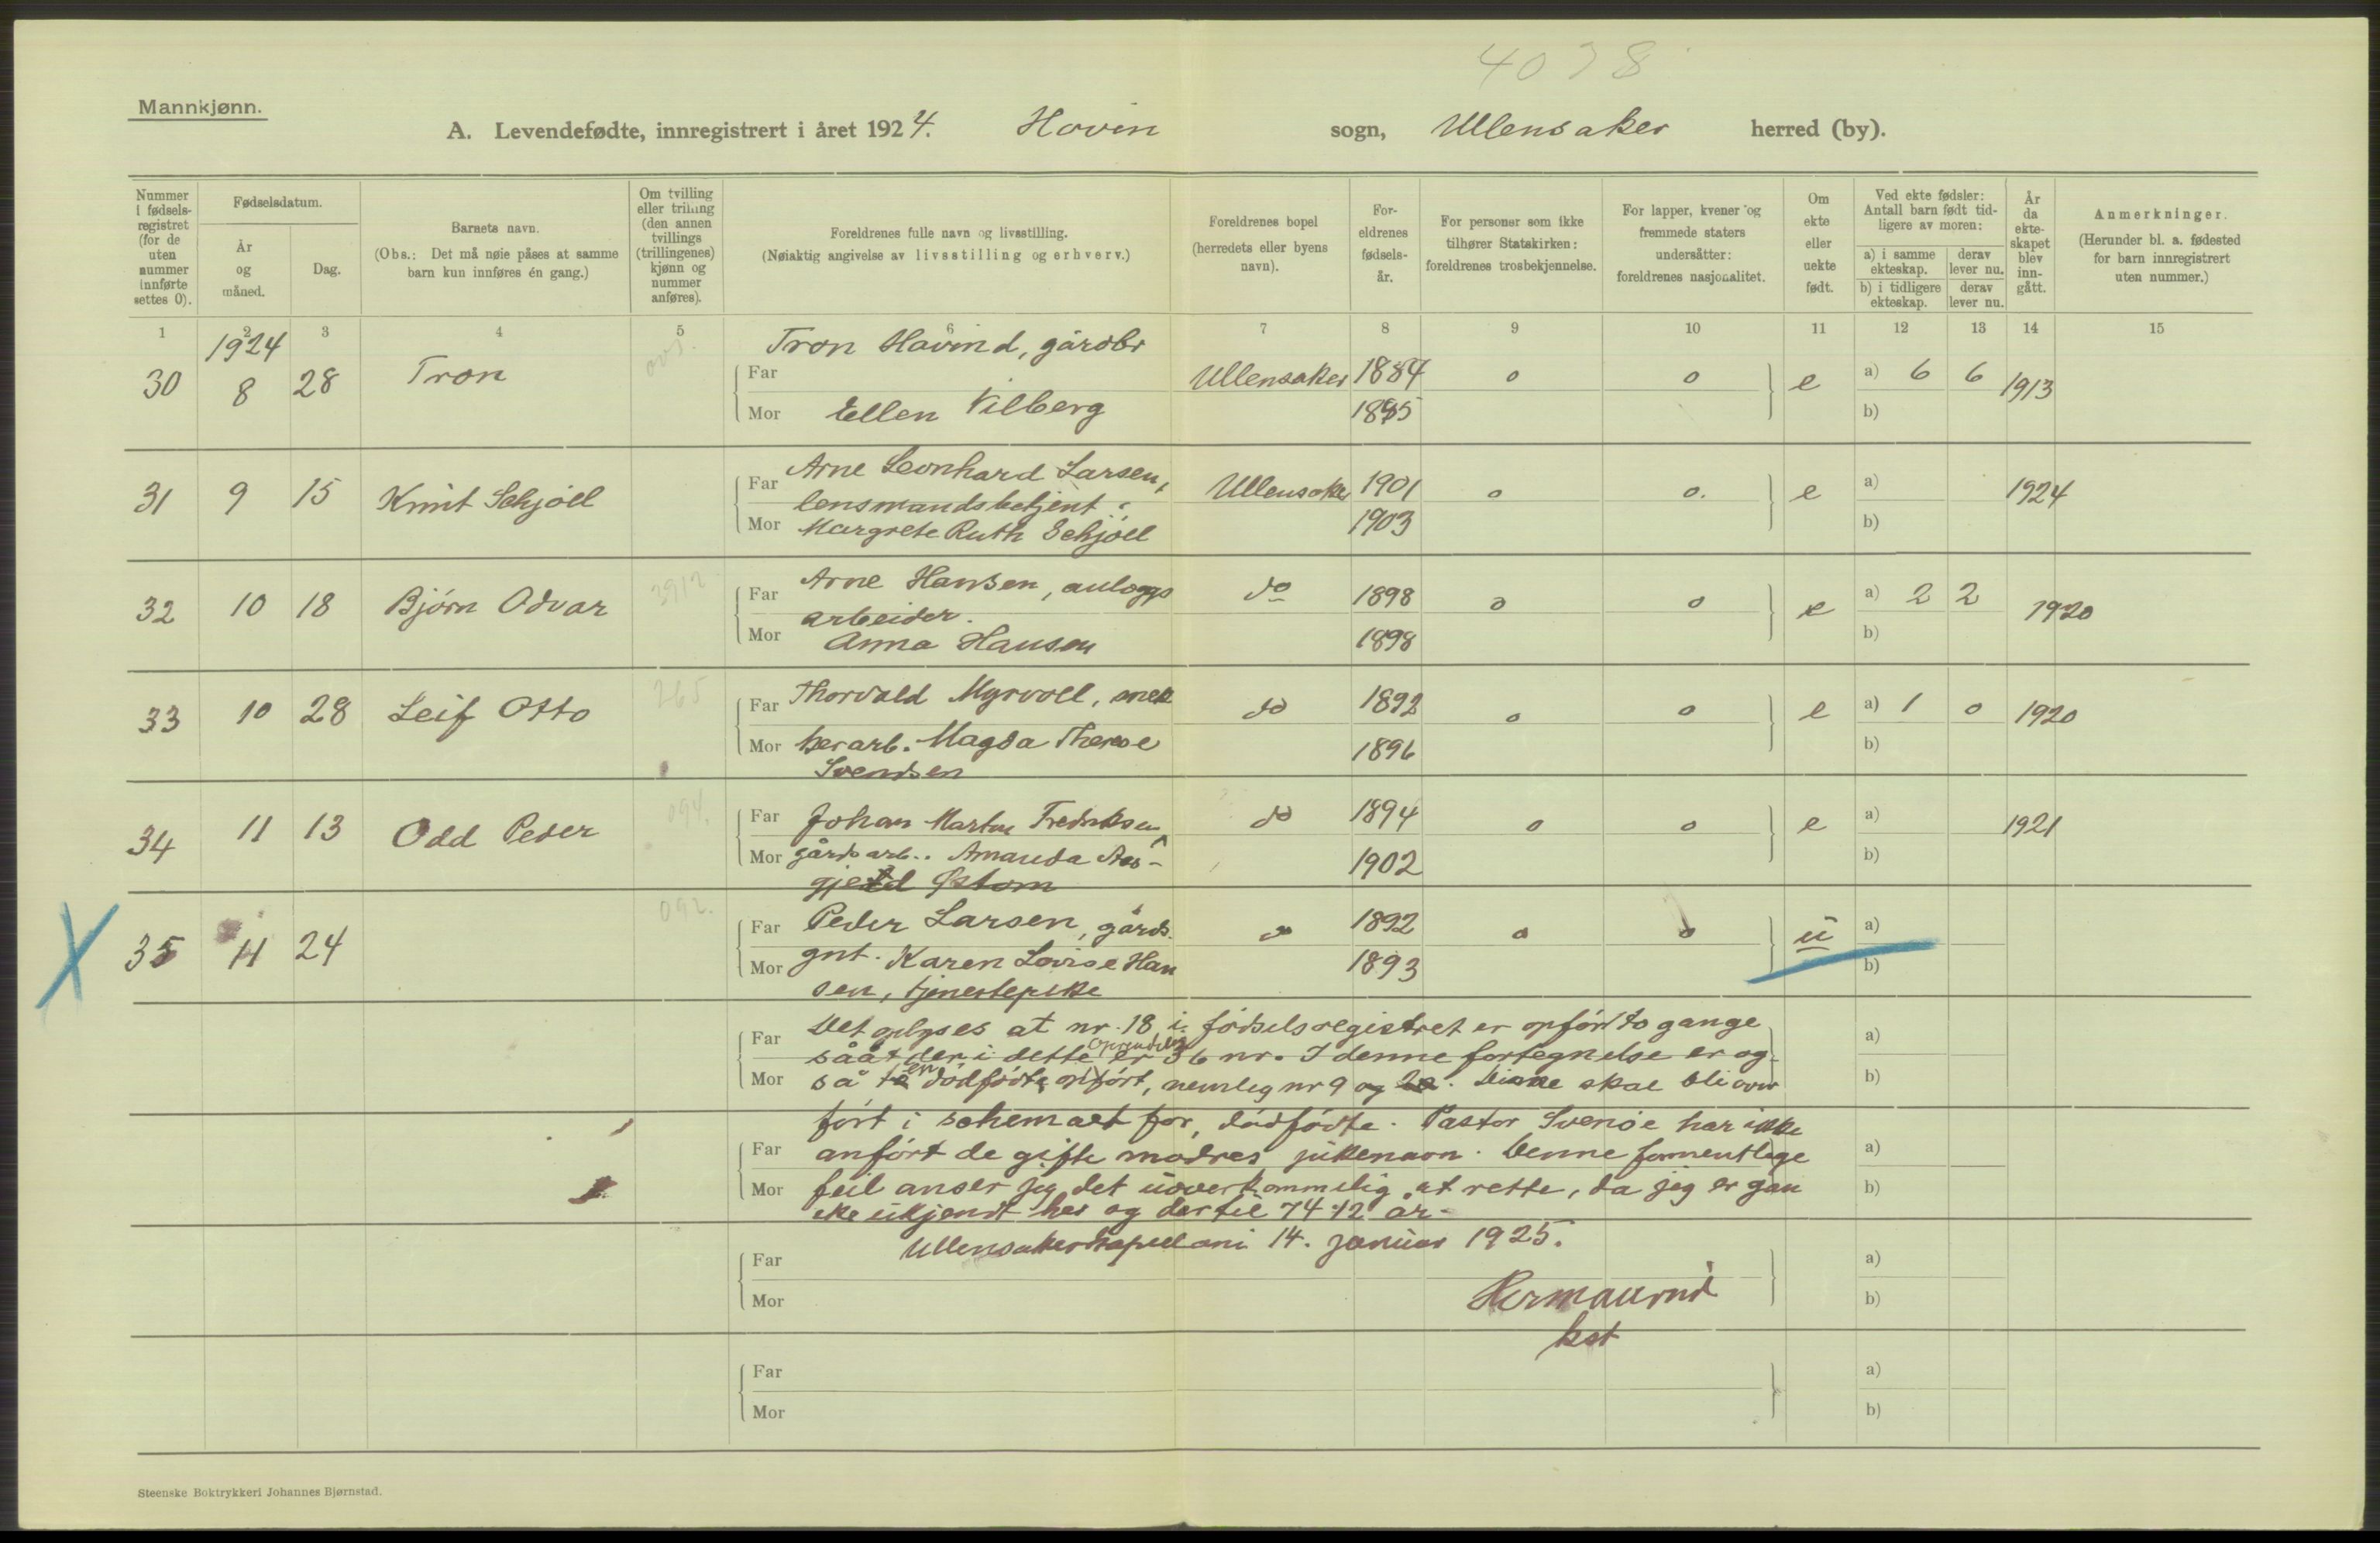 4078
Mannkjønn.
A. Levendefødte, innregistrert i året 1924. Hovin sogn, Ullensaker herred (by).
Nummer i fødselsregistret (for de uten nummer innførte settes 0).
Fødselsdatum.
År og måned.
Dag.
Barnets navn.
(Obs.: Det må nøie påses at samme barn kun innføres én gang.)
Om tvilling eller trilling (den annen tvillings (trillingenes) kjønn og nummer anføres).
Foreldrenes fulle navn og livsstilling.
(Nøiaktig angivelse av livsstilling og erhverv.)
Foreldrenes bopel (herredets eller byens navn).
Foreldrenes fødselsår.
For personer som ikke tilhører Statskirken: foreldrenes trosbekjennelse.
For lapper, kvener og fremmede staters undersåtter: foreldrenes nasjonalitet.
Om ekte eller uekte født.
Ved ekte fødsler: Antall barn født tidligere av moren:
a) i samme ekteskap. derav lever nu.
b) i tidligere ekteskap. derav lever nu.
År da ekteskapet blev inngått.
Anmerkninger.
(Herunder bl. a. fødested for barn innregistrert uten nummer.)
1 2 3 4 5 6 7 8 9 10 11 12 13 14 15
1924 Tron Havind, gårdbr
30 8 28 Tron Far Ullensaker 1884 o o e a) 6 6 1913
Mor Ellen Vilberg 1885 b)
31 9 15 Knut Schjöll Far Arne Leonhard Larsen, Ullensaker 1901 o o. e a) 1924
lensmandsbetjent.
Mor Margrete Ruth Schjöll 1903 b)
32 10 18 Bjørn Odvar 3912 Far Arne Hansen, anlæggs do 1898 o o e a) 2 2 1920
arbeider.
Mor Anna Hansen 1898 b)
33 10 28 Leif Otto 265 Far Thorvald Myrvoll, snek do 1892 o o e a) 1 0 1920
Mor kerarb. Magda Therese 1896 b)
Svendsen
34 11 13 Odd Peder 094. Far Johan Martin Fredriksen do 1894 o o e a) 1921
Mor gårdsarb.. Amanda Aas- 1902 b)
gjerd Østom
35 11 24 092. Far Peder Larsen, gårds. do 1892 o o u a)
Mor gut. Karen Lovise Han 1893 b)
sen, tjenestepike
Far Det oplyses at nr. 18 i fødselsregistret er opført to gange a)
såat der i dette oprindelig er 36 nr. I denne fortegnelse er og-
Mor så en dødfødt opført, nemlig nr 9 og skal bli over b)
ført i schemaet for dødfødte. Pastor Svenöe har ikke
Far anført de gifte mødres pikenavn. Denne formentlige a)
Mor feil anser jeg det uoverkommelig at rette, da jeg er gan b)
ske ukjendt her og dertil 74 1/2 år.
Ullensaker kapellani 14. januar 1925.
Far a)
Mor b)
kst
Far a)
Mor b)
Steenske Boktrykkeri Johannes Bjørnstad.